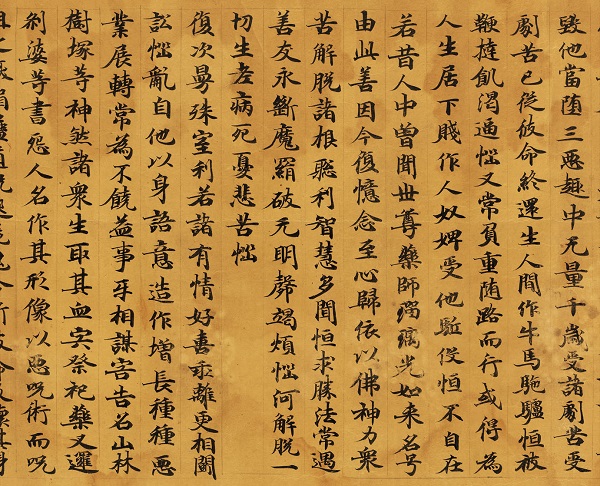 毀他當堕三惡趣中无量千歲受諸劇苦受
劇苦已從彼命終還生人間作牛馬駞驢恒被
鞭撻飢渴逼惱又常負重随路而行或得為
人生居下賤作人奴婢受他駈役恒不自在
若昔人中曾聞世尊藥師瑠璃光如来名号
由此善因今復憶念至心歸依以佛神力衆
苦解脱諸根聡利智慧多聞恒求勝法常遇
善友永斷魔羂破无明㲉竭煩惱河解脱一
切生老病死憂悲苦惱
復次曼殊室利若諸有情好善乖離更相鬪
訟惱亂自他以身語意造作增長種種惡
業展轉常為不饒益事互相謀害告召山林
樹塚等神煞諸衆生取其血宍祭祀藥叉邏
刹婆等書怨人名作其形像以惡呪術而呪